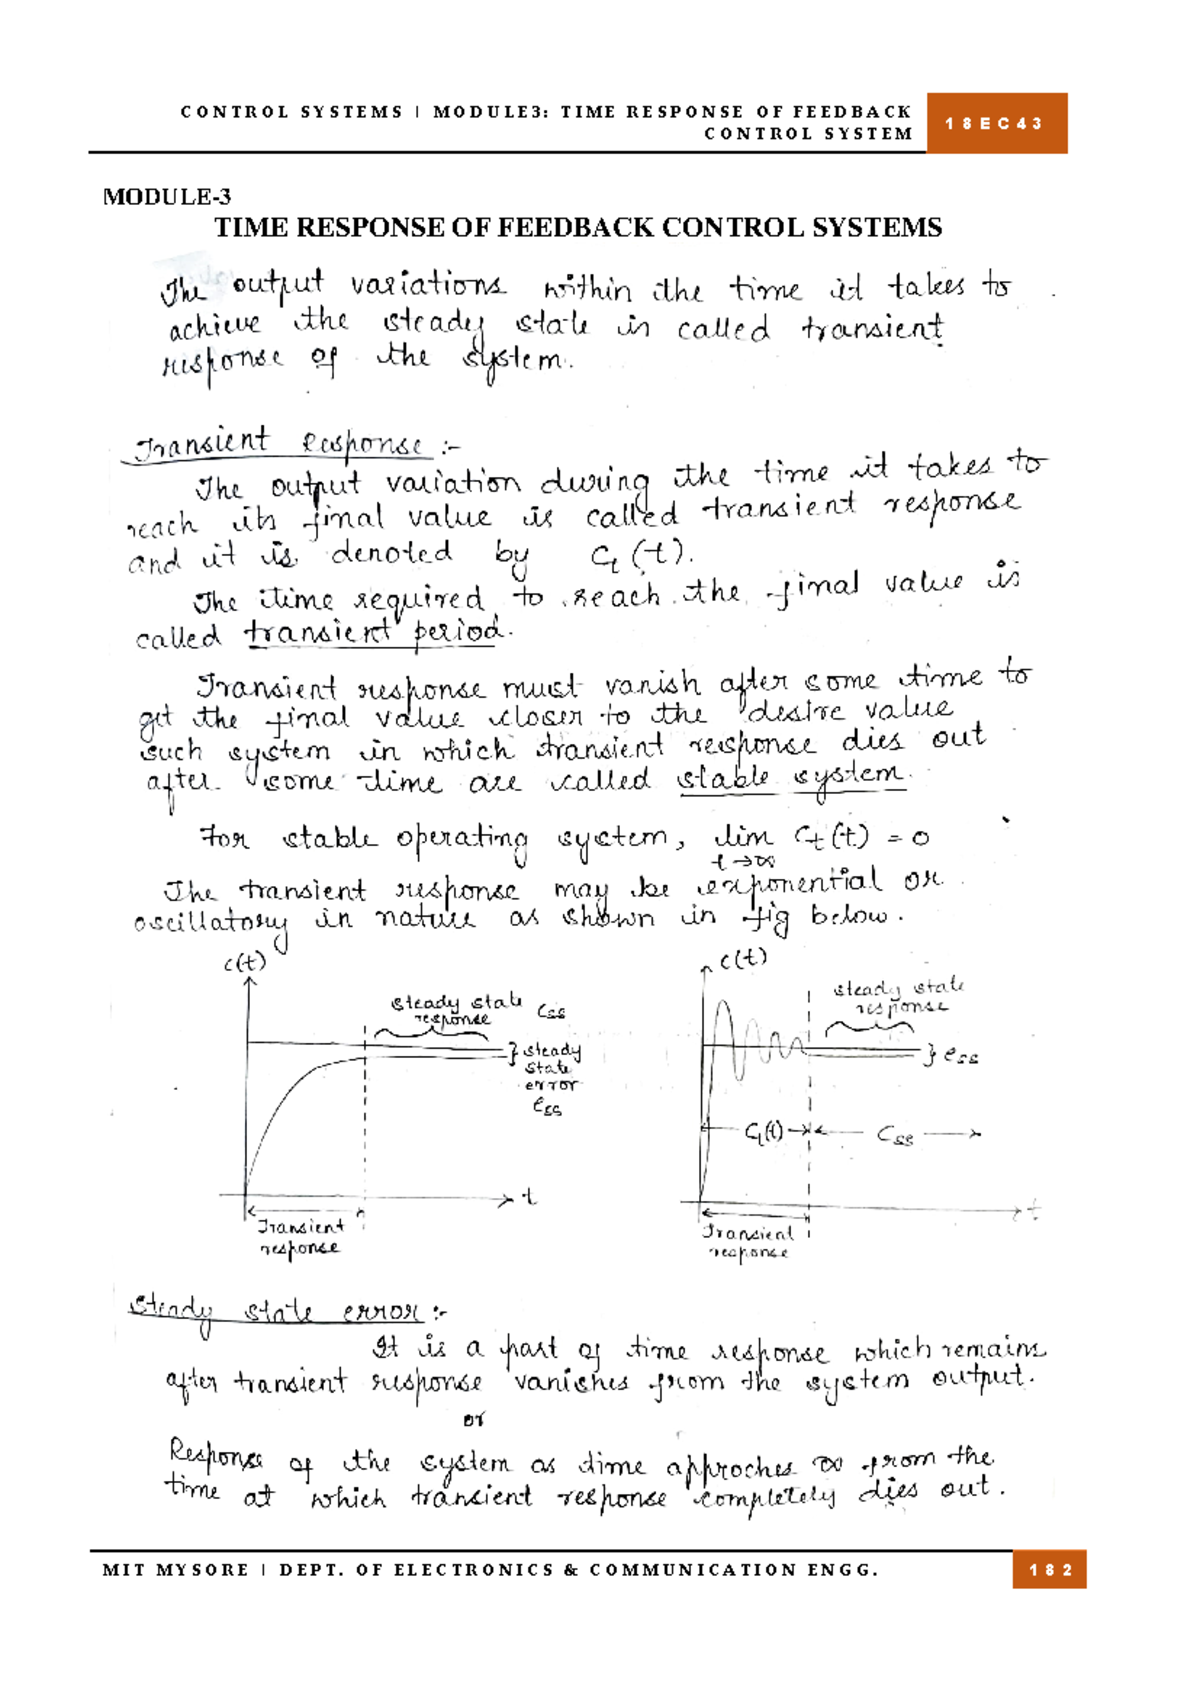 CONTROL SYSTEMS | MODULE3: TIME RESPONSE OF FEEDBACK
CONTROL SYSTEM
18EC43
MODULE-3
TIME RESPONSE OF FEEDBACK CONTROL SYSTEMS
The output variations within the time it takes to
achieve the steady state is called transient
response of the system.
Transient Response :-
The output variation during the time it takes to
reach its final value is called transient response
and it is denoted by Ct (t).
The time required to reach the final value is
called transient period.
Transient response must vanish after some time to
get the final value closer to the desire value
such system in which transient response dies out
after some time are called stable system.
For stable operating system, lim Ct (t) = 0
t→∞
The transient response may be exponential or
oscillatory in nature as shown in fig below.
c(t)
steady state Css
response
} steady
state
error
ess
t
Transient
response
c(t)
steady state
response
} ess
Ct(t)
Css
t
Transient
response
Steady state error :-
It is a part of time response which remains
after transient response vanishes from the system output.
or
Response of the system as time approches ∞ from the
time at which transient response completely dies out.
MIT MYSORE | DEPT. OF ELECTRONICS & COMMUNICATION ENGG.
182